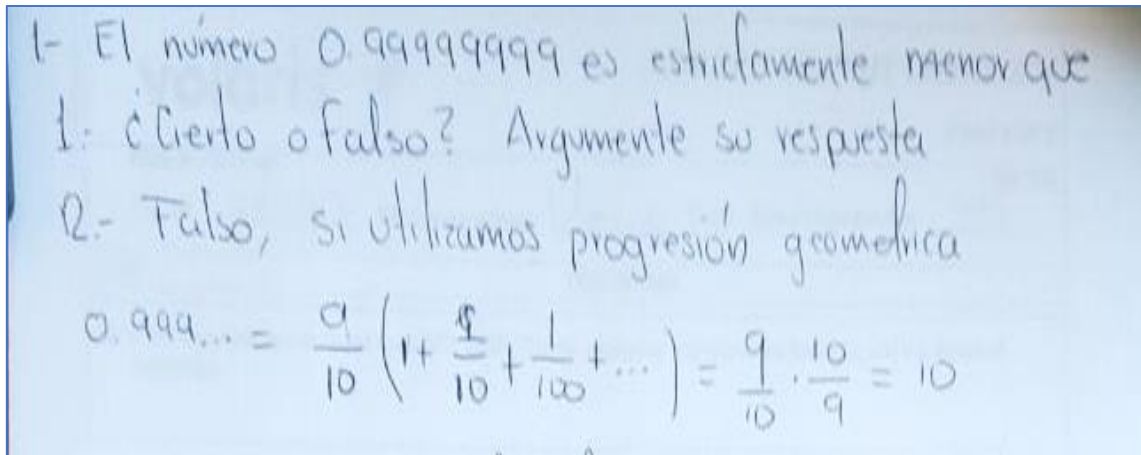 1- El número 0.99999999 es estrictamente menor que
1: ¿Cierto o Falso? Argumente su respuesta
R.- Falso, si utilizamos progresión geometrica
0.999... = 9/10 (1 + 1/10 + 1/100 + ...) = 9/10 · 10/9 = 10